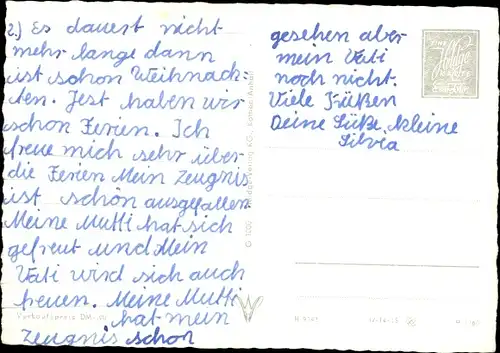 2.) Es dauert nicht
mehr lange dann
ist schon Weihnach-
ten. Jest haben wir
schon Ferien. Ich
freue mich sehr über
die Ferien Mein Zeugnis
ist schön ausgefallen
Meine Mutti hat sich
gefreut und Mein
Vati wird sich auch
freuen. Meine Mutti
hat mein
Zeugnis schon
gesehen aber
mein Vati
noch nicht.
Viele Küßen
Deine Süße, kleine
Silvia
Verkaufspreis DM